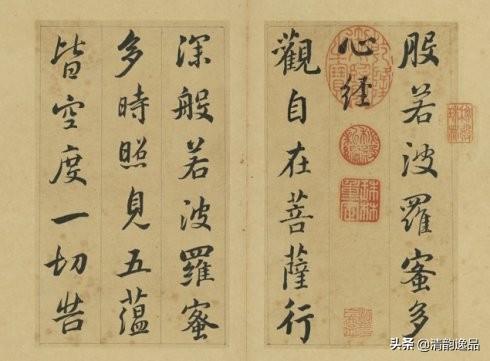 般若波羅蜜多
心經
觀自在菩薩行
深般若波羅蜜
多時照見五蘊
皆空度一切苦
头条 @清韵逸品